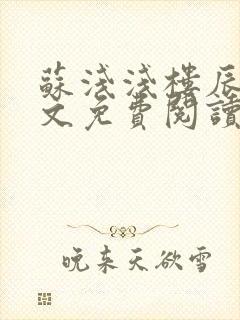 蘇淺淺樓辰
文免費閱讀
晚来天欲雪